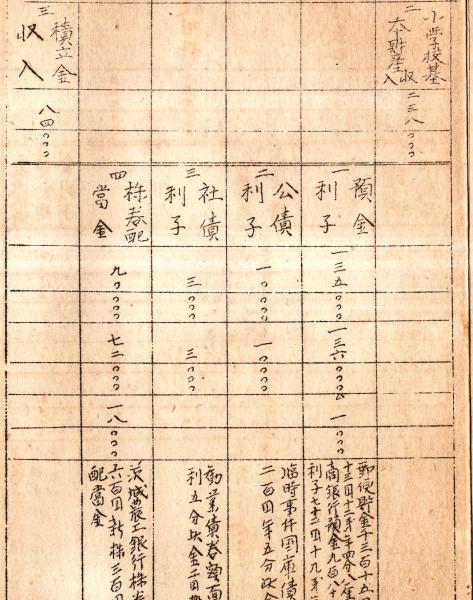 二
小学校基
本財産
収入
二三八〇〇〇
一
預金
利子
一三五〇〇〇
一三六〇〇〇
一〇〇〇
郵便貯金千三百十五
商銀行預金九百
二
公債
利子
一〇〇〇〇
一〇〇〇〇
臨時事件国庫債
二百円年五分
三
社債
利子
三〇〇〇
三〇〇〇
勧業債券額面
利五分
四
株券配
当金
九〇〇〇〇
七二〇〇〇
一八〇〇〇
茨城農工銀行株
六百円新株三百円
配当金
三
積立金
収入
八四〇〇〇